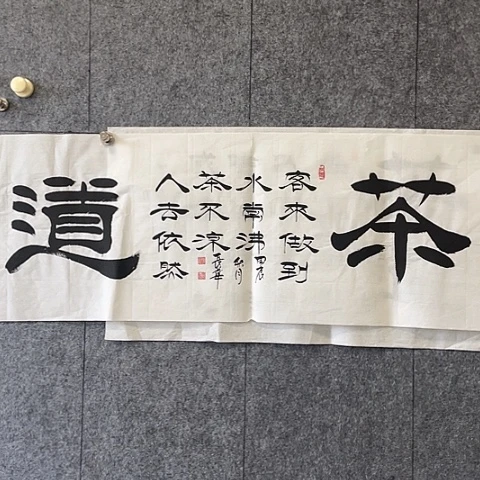 茶
客來做到
水常沸
人去依然
茶不涼
道